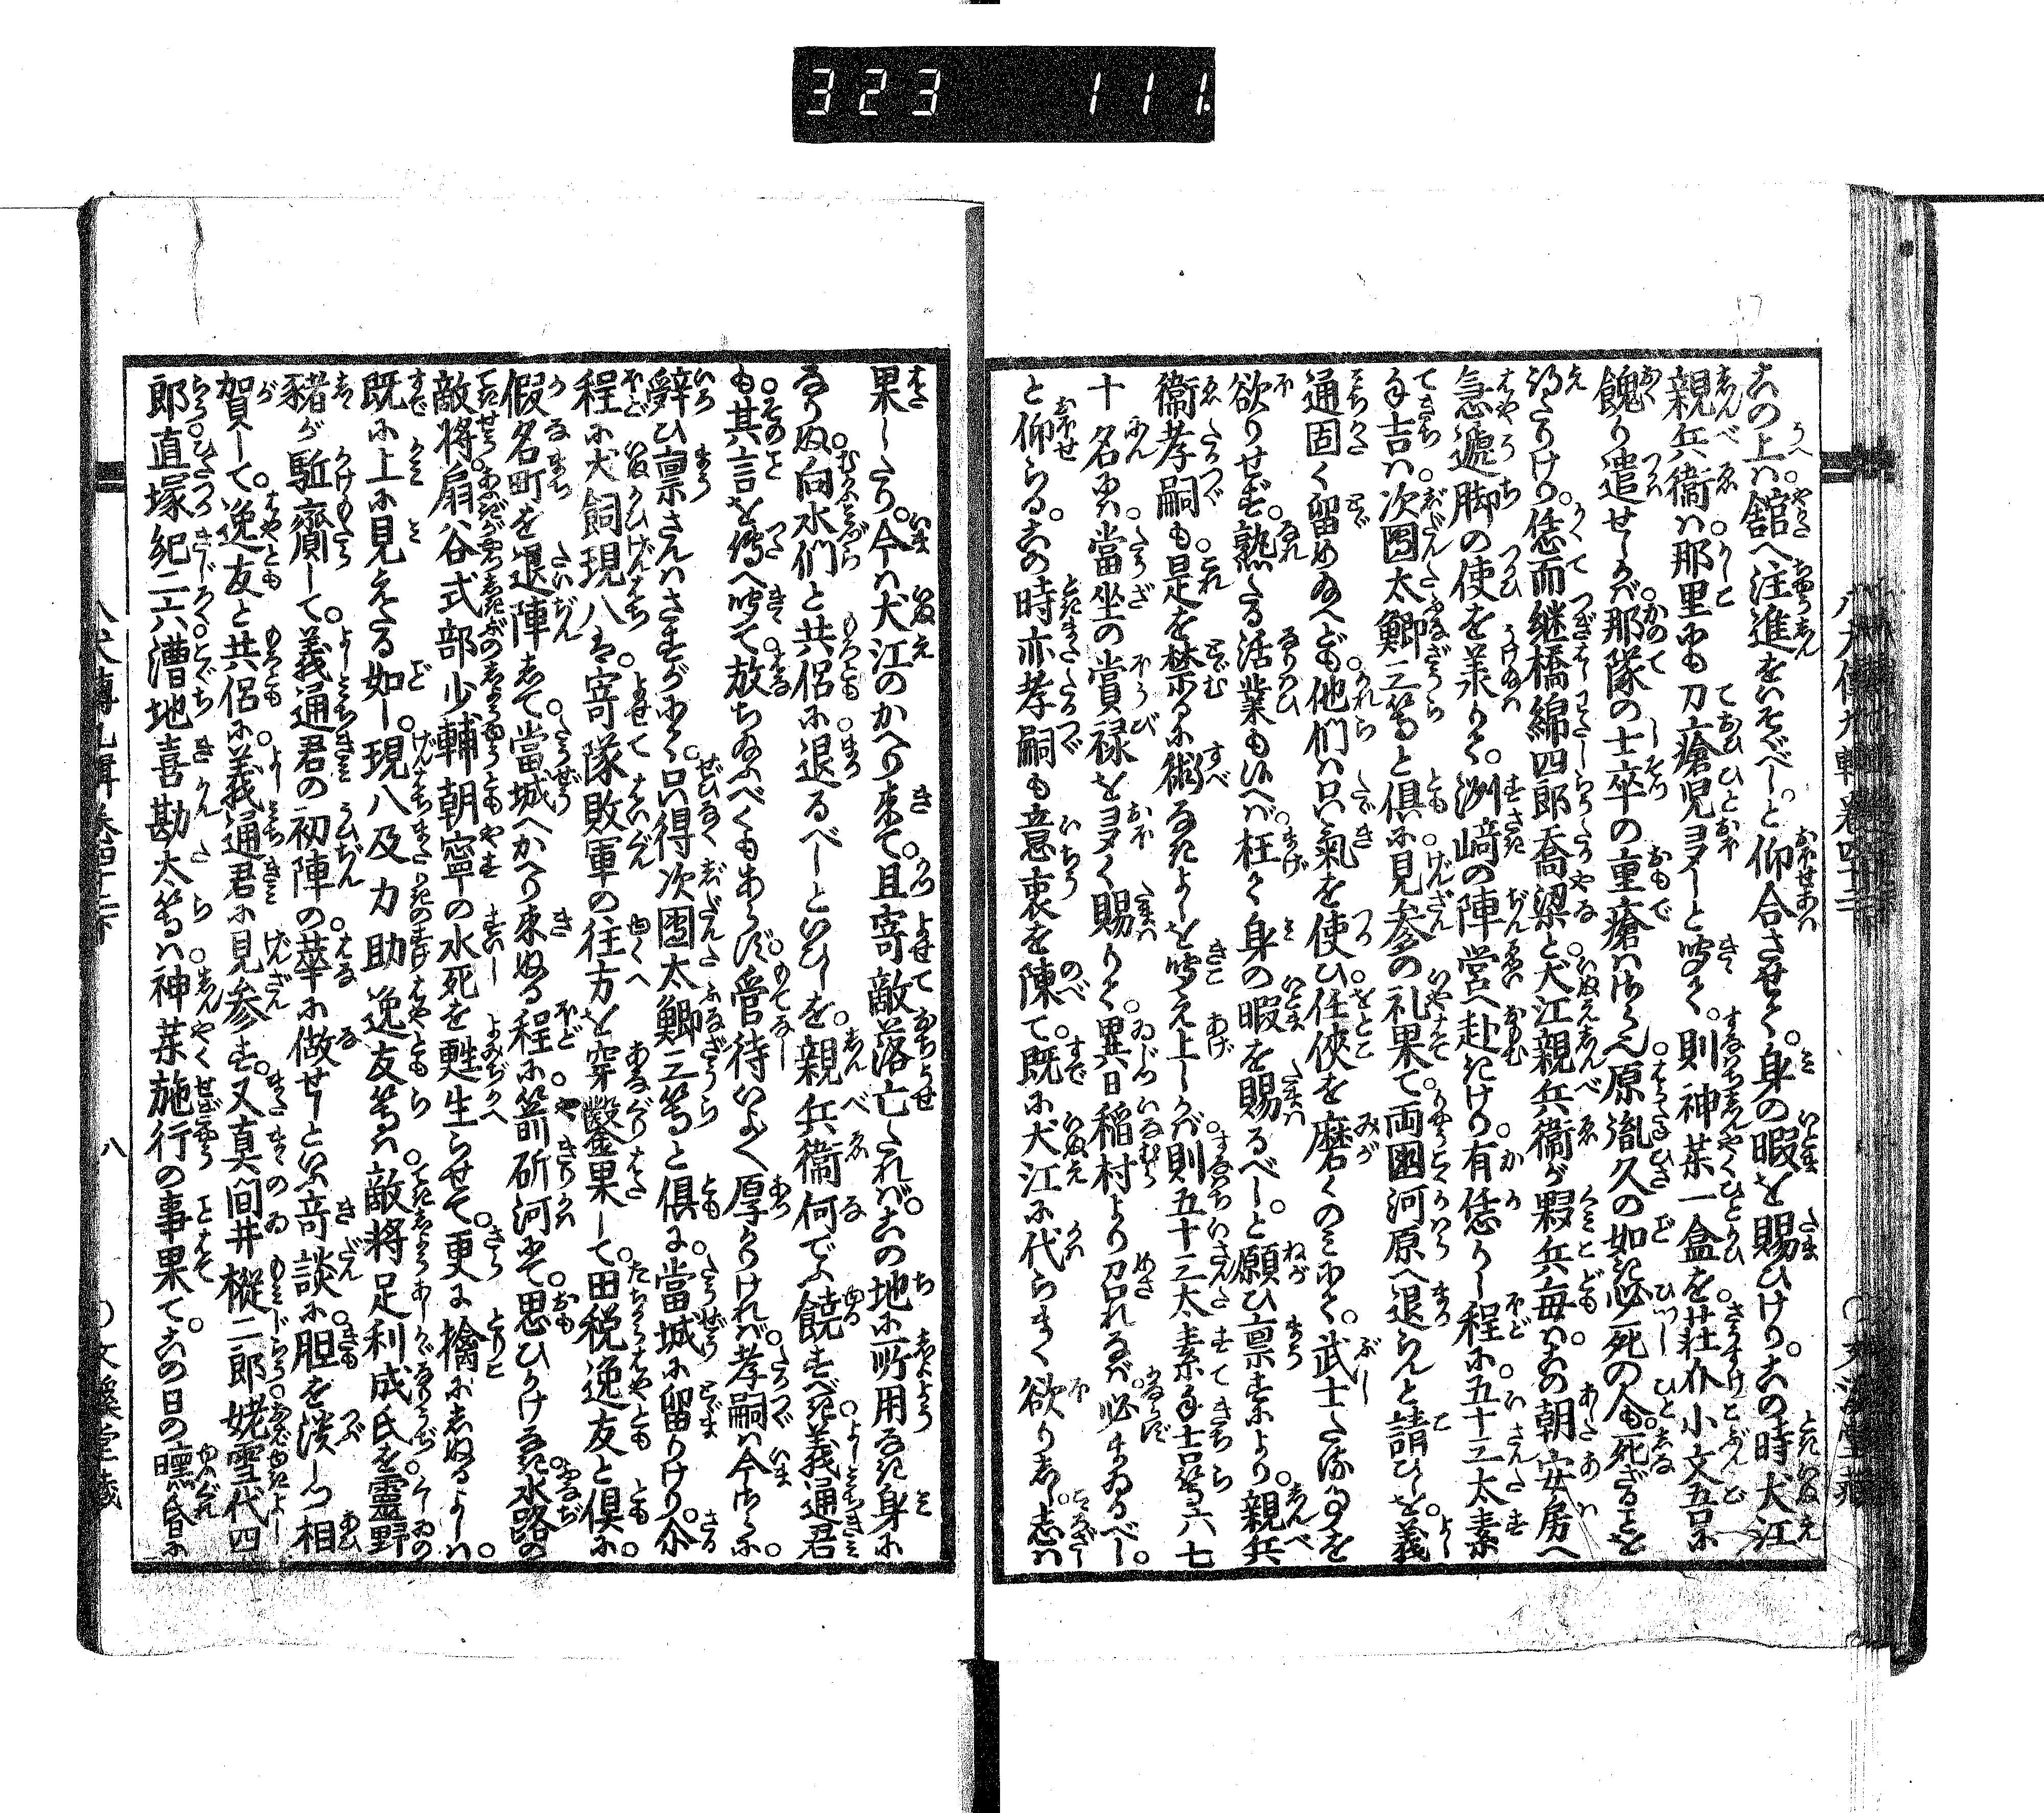 323 111
この上は舘へ注進をいそぐべしと仰合させて。身の暇を賜ひけり。この時犬江
親兵衞は那里にも刀瘡児ヨタしと聞て。則神薬一盒を荘介小文吾に
餽り遣せしかば那隊の士卒の重瘡はさら也原胤久の如き必死の人も死ざることを
得たりけり。恁而継橋綿四郎喬梁と犬江親兵衞が夥兵毎はこの朝安房へ
急遽脚の使を承りて。洲﨑の陣営へ赴きけり有恁りし程に五十三太素
手吉は次團太鯽三等と倶に見参の礼果て両國河原へ退らんと請ひしを義
通固く留め給へども他們は只氣を使ひ任侠を磨くのみにて。武士たる事を
欲りせず。熟たる活業も候へば枉て身の暇を賜るべし。と願ひ禀すにより。親兵
衞孝嗣も是を禁るに術なきよしを聞え上しかば則五十三太素手吉等六七
十名には當坐の賞禄をヨタく賜りて。異日稲村より召れなば必まゐるべし。
と仰らる。この時亦孝嗣も意衷を陳て。既に犬江に代らまく欲りしし志は
果したり。今は犬江のかへり来て。且寄敵落亡たれば。この地に所用なき身に
なりぬ向水們と共侶に退るべしといひしを。親兵衞何でふ饒すべき義通君
も其言を傳へ聞て放ち給ふべくもあらず。管待いよゝ厚かりければ孝嗣は今さらに。
辭ひ禀さんはさすがにて。只得次團太鯽三等と倶に當城に留りけり。介
程に犬飼現八は。寄隊敗軍の往方を穿鑿果して。田税逸友と倶に。
假名町を退陣して當城へかへり来ぬる程に箭斫河にて思ひかけなき水路の
敵将扇谷式部少輔朝寧の水死を甦生らせて。更に擒にしぬるよしは。
既に上に見えたる如し。現八及力助逸友等は敵将足利成氏を靈野
豬が駈齎して。義通君の初陣の華に做せしといふ奇談に胆を潰しつ相
賀して。逸友と共侶に義通君に見参す。又真間井樅二郎姥雪代四
郎直塚紀二六漕地喜勘太等は神薬施行の事果て。この日の曛昏に
八犬傳九輯巻四十二下
八
文溪堂藏